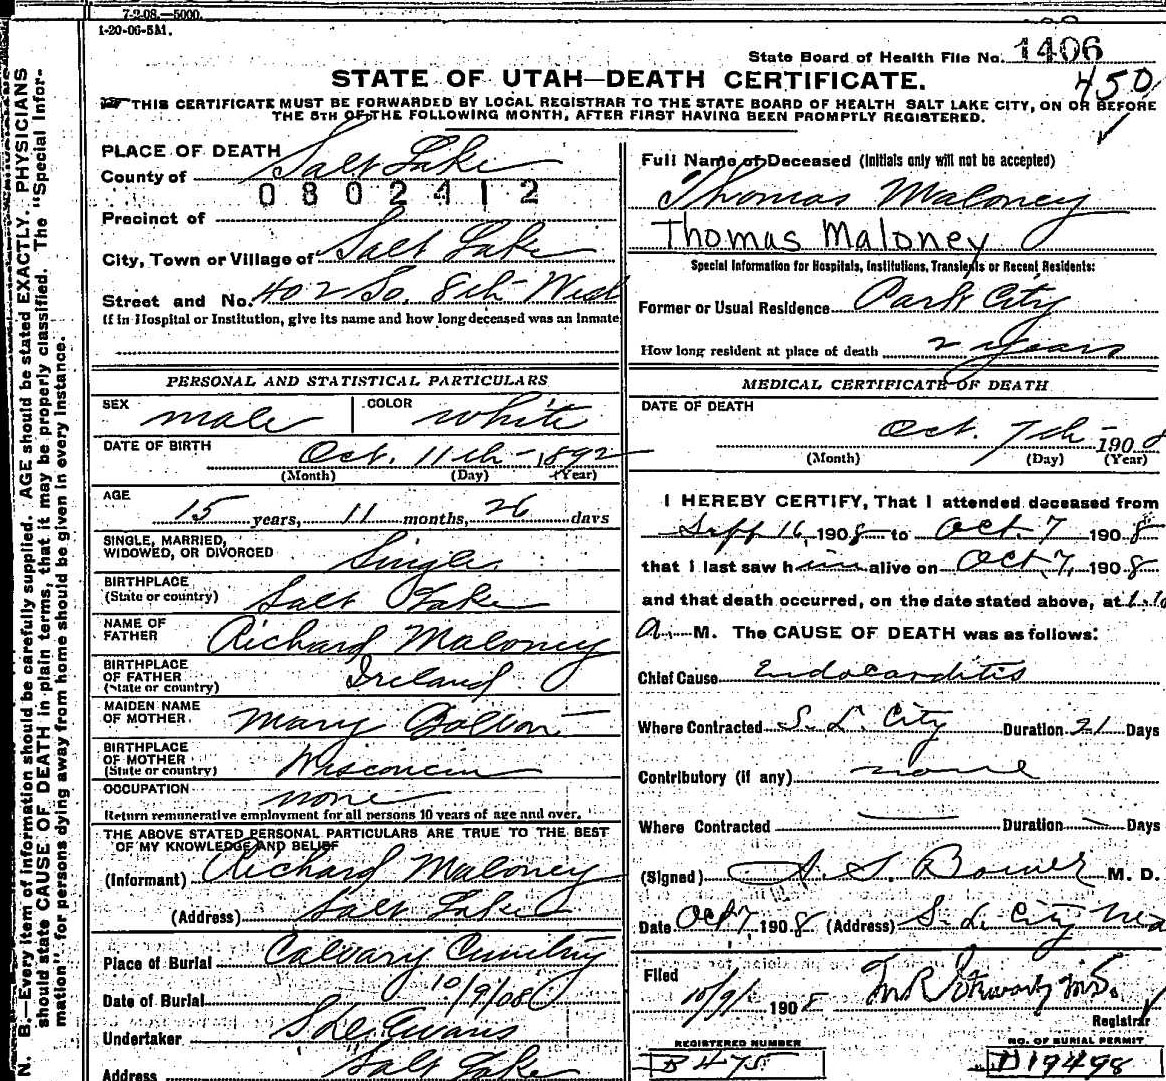 7-2-08.—5000.
1-20-06-5M.
State Board of Health File No. 1406
STATE OF UTAH—DEATH CERTIFICATE.
450
THIS CERTIFICATE MUST BE FORWARDED BY LOCAL REGISTRAR TO THE STATE BOARD OF HEALTH SALT LAKE CITY, ON OR BEFORE
THE 5TH OF THE FOLLOWING MONTH, AFTER FIRST HAVING BEEN PROMPTLY REGISTERED.
N. B.—Every item of information should be carefully supplied. AGE should be stated EXACTLY. PHYSICIANS
should state CAUSE OF DEATH in plain terms, that it may be properly classified. The "Special Infor-
mation" for persons dying away from home should be given in every instance.
PLACE OF DEATH
County of Salt Lake
0802412
Precinct of
City, Town or Village of Salt Lake
Street and No. 402 So. 8th West
(If in Hospital or Institution, give its name and how long deceased was an inmate
PERSONAL AND STATISTICAL PARTICULARS
SEX male COLOR white
DATE OF BIRTH Oct. 11th - 1892
(Month) (Day) (Year)
AGE
15 years, 11 months, 26 days
SINGLE, MARRIED,
WIDOWED, OR DIVORCED Single
BIRTHPLACE
(State or country) Salt Lake
NAME OF
FATHER Richard Maloney
BIRTHPLACE
OF FATHER
(State or country) Ireland
MAIDEN NAME
OF MOTHER. Mary Bolton
BIRTHPLACE
OF MOTHER
(State or country) Wisconsin
OCCUPATION none
Return remunerative employment for all persons 10 years of age and over.
THE ABOVE STATED PERSONAL PARTICULARS ARE TRUE TO THE BEST
OF MY KNOWLEDGE AND BELIEF
(Informant) Richard Maloney
(Address) Salt Lake
Place of Burial Calvary Cemetery
Date of Burial 10/9/08
Undertaker Evans
Address Salt Lake
Full Name of Deceased (Initials only will not be accepted)
Thomas Maloney
Thomas Maloney
Special Information for Hospitals, Institutions, Transients or Recent Residents:
Former or Usual Residence Park City
How long resident at place of death 2 years
MEDICAL CERTIFICATE OF DEATH
DATE OF DEATH
Oct. 7th - 1908
(Month) (Day) (Year)
I HEREBY CERTIFY, That I attended deceased from
Sept 16, 1908 to Oct. 7 1908
that I last saw him alive on Oct 7, 1908
and that death occurred, on the date stated above, at 1.10
A. M. The CAUSE OF DEATH was as follows:
Chief Cause Endocarditis
Where Contracted S. L. City Duration 21 Days
Contributory (if any) none
Where Contracted Duration Days
(Signed) A. S. Bower M. D.
Date Oct 7, 1908 (Address) S. L. City
Filed
10/9/ 1908
Registrar
REGISTERED NUMBER
B 475
NO. OF BURIAL PERMIT
D19498